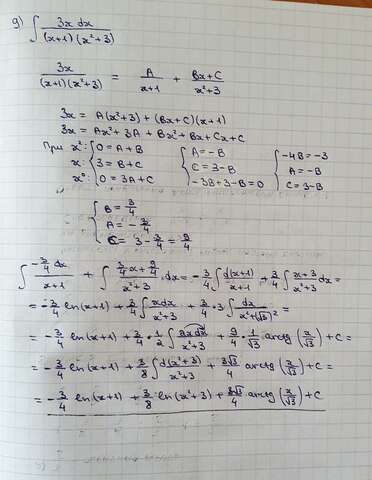 9) ∫ 3x dx / (x+1)(x²+3)
3x / (x+1)(x²+3) = A / x+1 + Bx+C / x²+3
3x = A(x²+3) + (Bx+C)(x+1)
3x = Ax² + 3A + Bx² + Bx + Cx + C
При x²: { 0 = A+B { A = -B { -4B = -3
x: { 3 = B+C { C = 3-B { A = -B
x⁰: { 0 = 3A+C { -3B+3-B=0 { C = 3-B
{ B = 3/4
{ A = -3/4
{ C = 3 - 3/4 = 9/4
∫ -3/4 dx / x+1 + ∫ 3/4 x + 9/4 / x²+3 · dx = -3/4 ∫ d(x+1) / x+1 + 3/4 ∫ x+3 / x²+3 dx =
= -3/4 ln(x+1) + 3/4 ∫ x dx / x²+3 + 3/4 · 3 ∫ dx / x²+(√3)² =
= -3/4 ln(x+1) + 3/4 · 1/2 ∫ 2x dx / x²+3 + 9/4 · 1/√3 arctg (x/√3) + C =
= -3/4 ln(x+1) + 3/8 ∫ d(x²+3) / x²+3 + 3√3/4 arctg (x/√3) + C =
= -3/4 ln(x+1) + 3/8 ln(x²+3) + 3√3/4 arctg (x/√3) + C